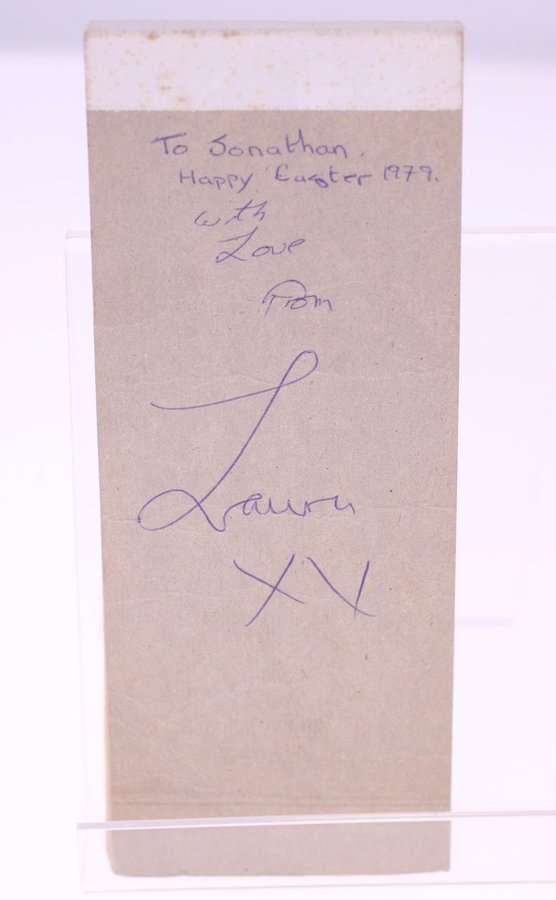 To Jonathan.
Happy Easter 1979.
with
Love
From
Laura
XX